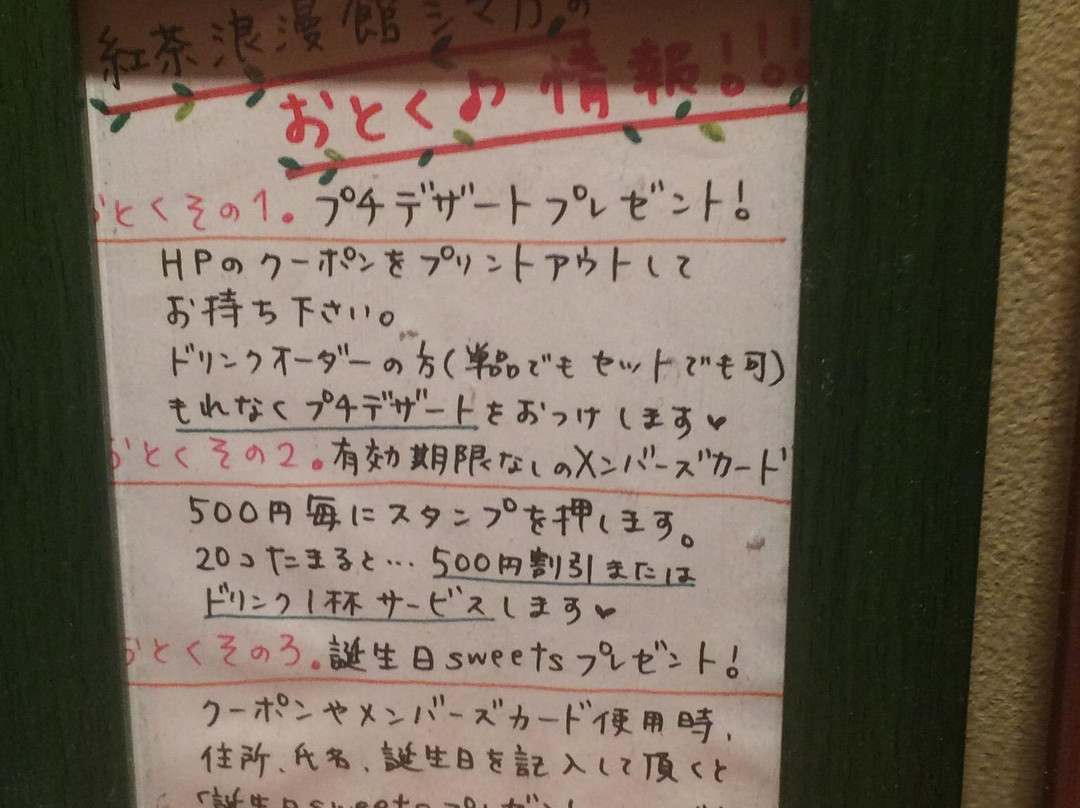 紅茶浪漫館シマ乃の
おとくな情報!!!
おとくその1. プチデザートプレゼント!
HPのクーポンをプリントアウトして
お持ち下さい。
ドリンクオーダーの方(単品でもセットでも可)
もれなくプチデザートをおつけします♥
おとくその2. 有効期限なしのメンバーズカード
500円毎にスタンプを押します。
20コたまると… 500円割引または
ドリンク1杯サービスします♥
おとくその3. 誕生日sweetsプレゼント!
クーポンやメンバーズカード使用時、
住所、氏名、誕生日を記入して頂くと
「誕生日sweetsプレゼント